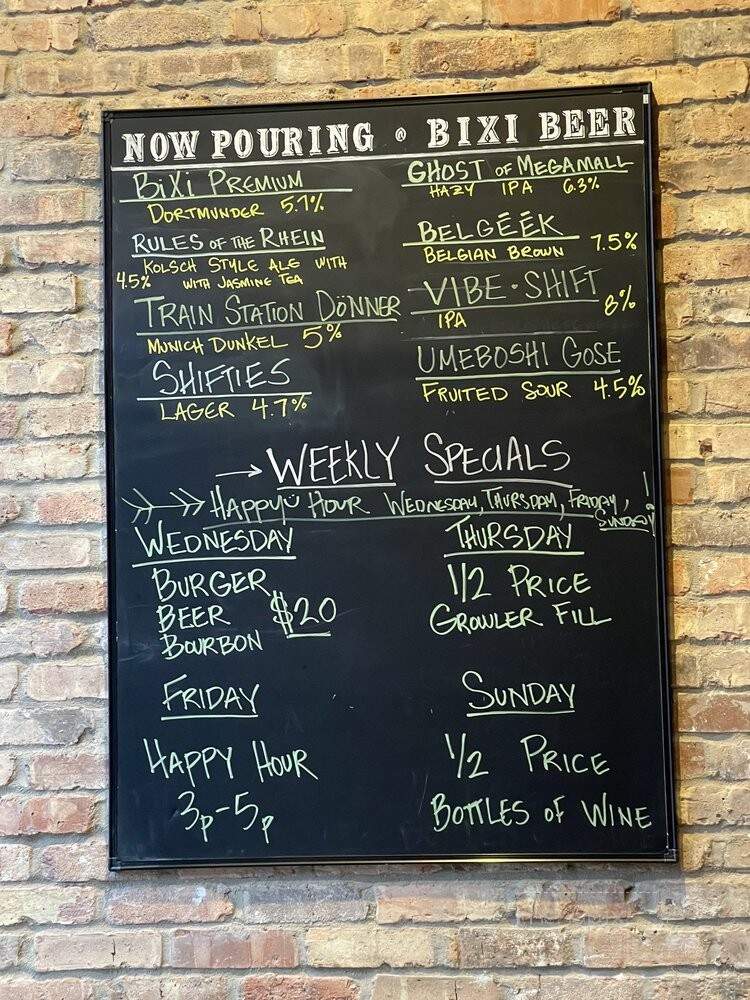 NOW POURING @ BIXI BEER
BiXi PREMIUM
DORTMUNDER 5.7%
RULES OF THE RHEIN
KOLSCH STYLE ALE WITH
4.5% WITH JASMINE TEA
TRAIN STATION DÖNNER
MUNICH DUNKEL 5%
SHIFTIES
LAGER 4.7%
GHOST OF MEGAMALL
HAZY IPA 6.3%
BELGĒĒK
BELGIAN BROWN 7.5%
VIBE · SHIFT
IPA 8%
UMEBOSHI GOSE
FRUITED SOUR 4.5%
→ WEEKLY SPECIALS
HAPPY HOUR WEDNESDAY, THURSDAY, FRIDAY,
SUNDAY!
WEDNESDAY
BURGER
BEER $20
BOURBON
THURSDAY
1/2 PRICE
GROWLER FILL
FRIDAY
HAPPY HOUR
3p-5p
SUNDAY
1/2 PRICE
BOTTLES OF WINE